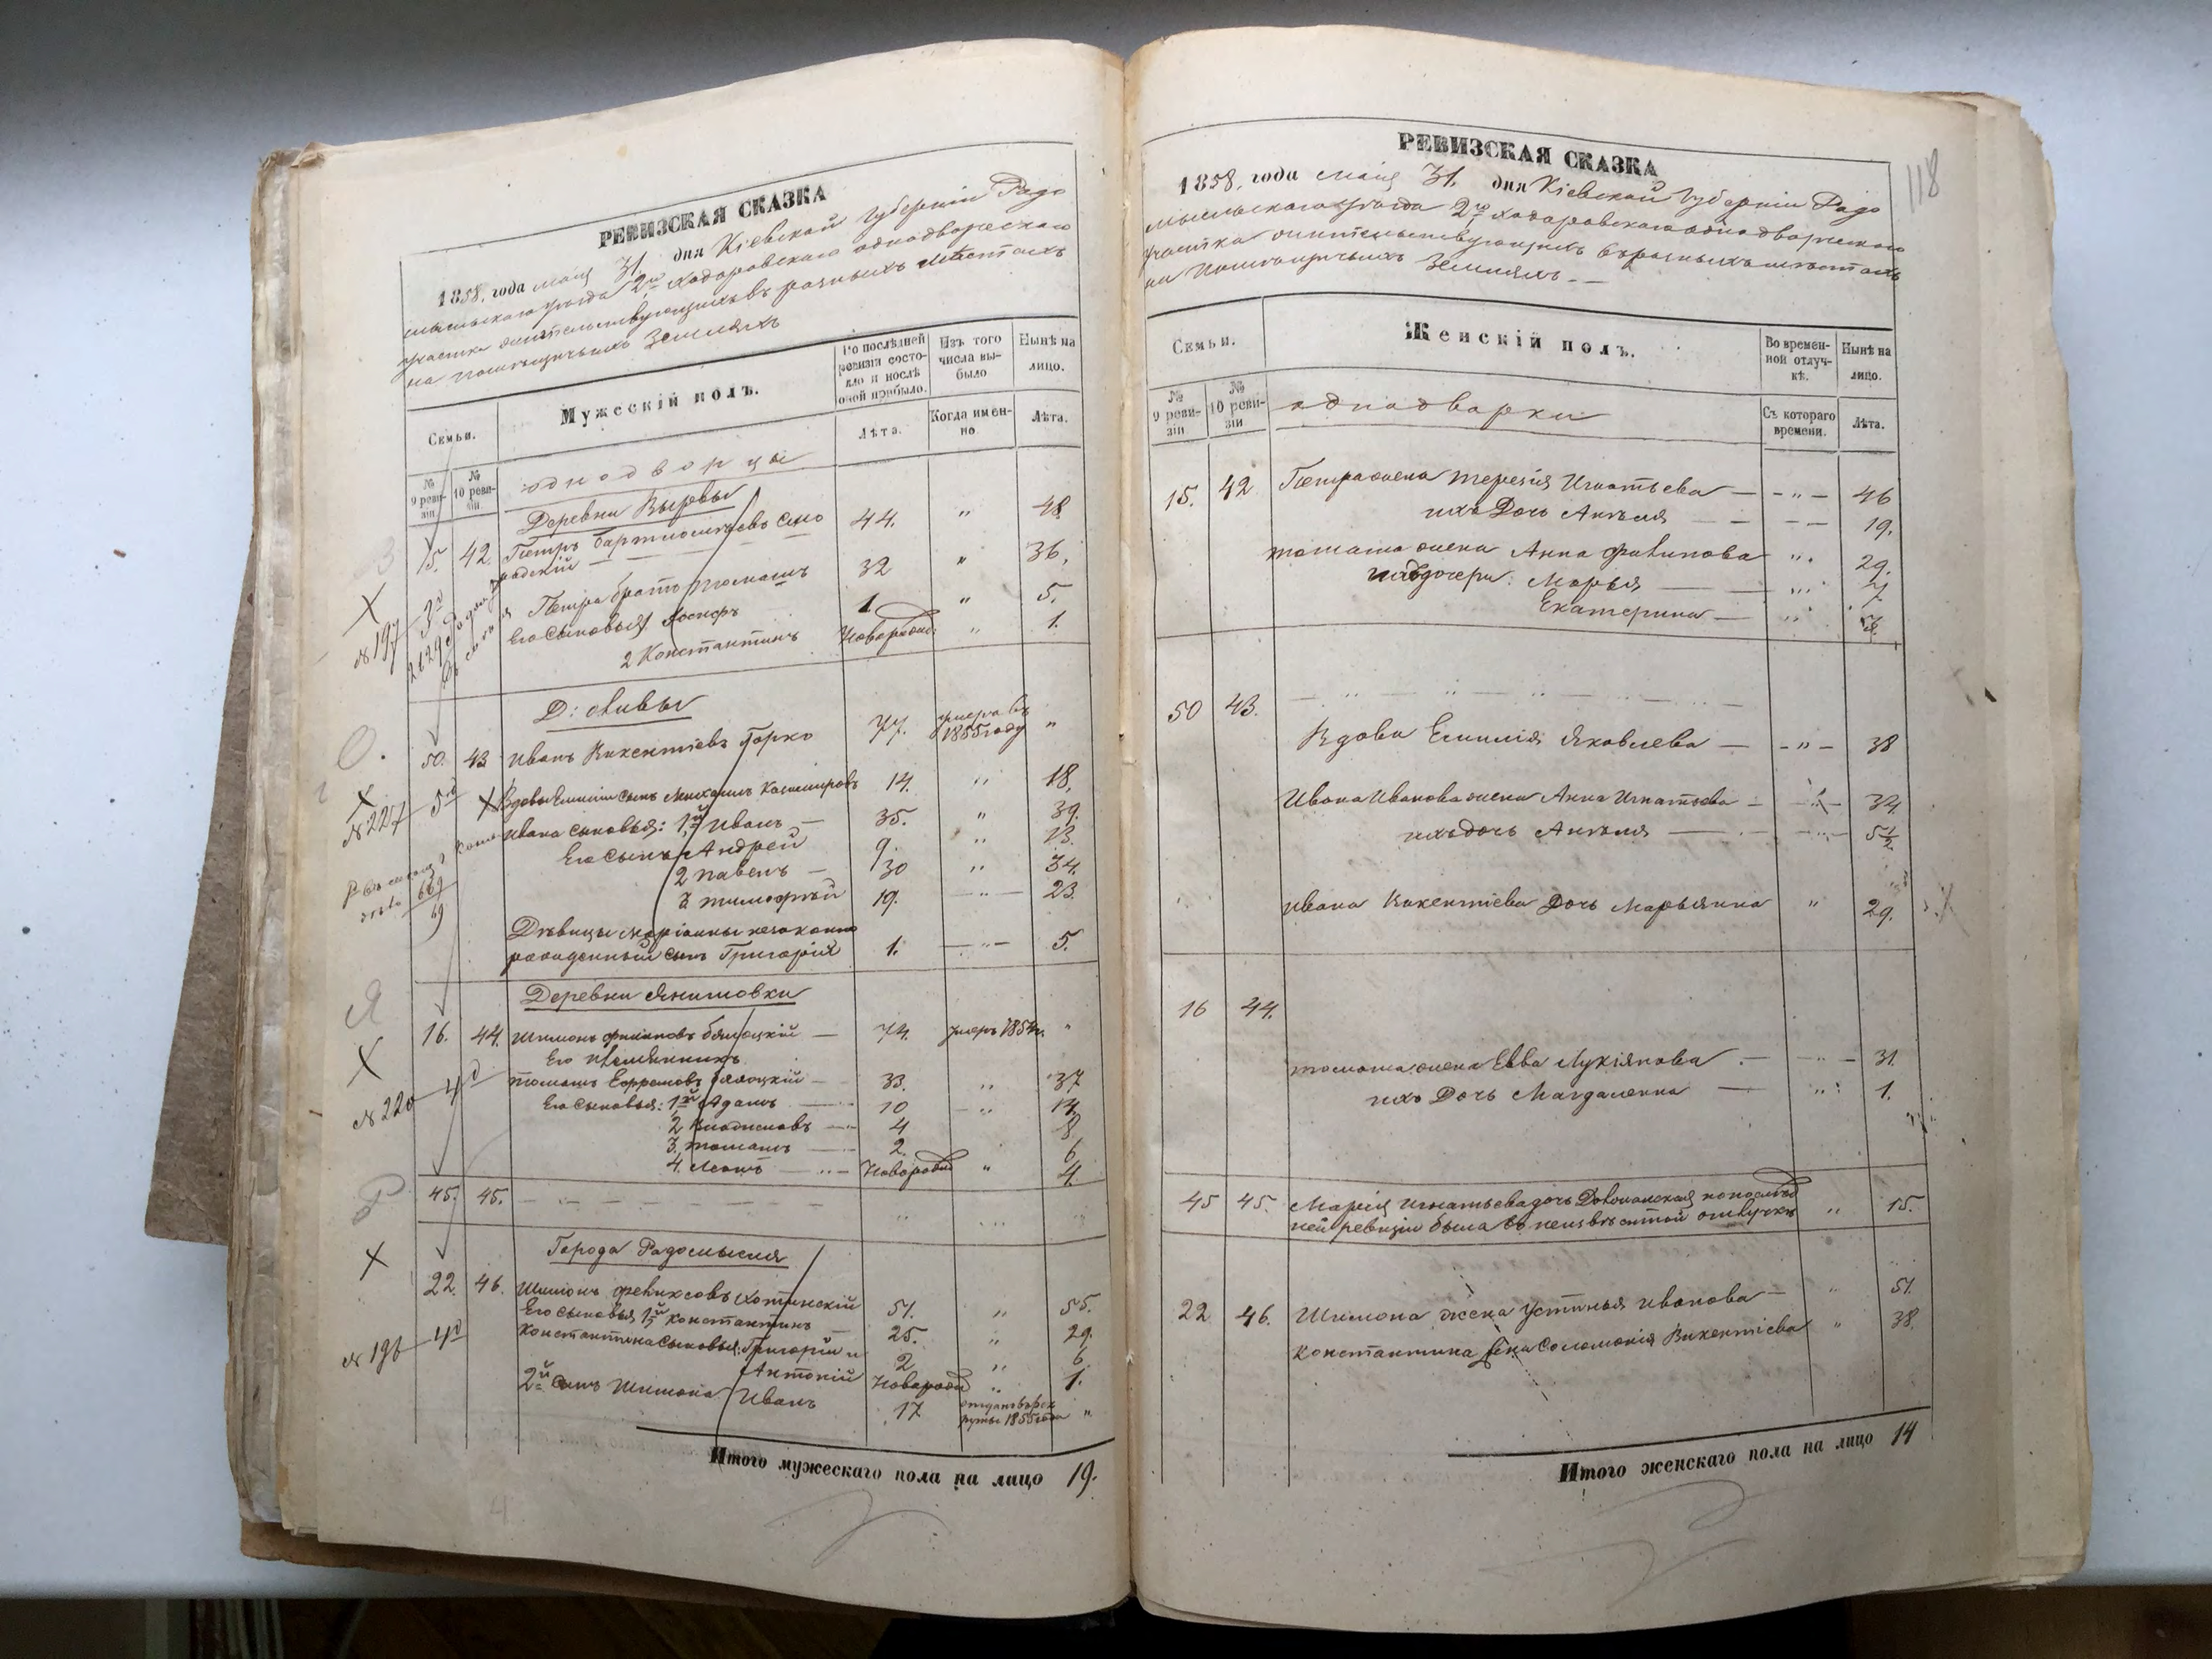 РЕВИЗСКАЯ СКАЗКА
1858, года маія 31 дня Кіевской Губерніи Радо
мысльскаго уѣзда 2го Ходоровскаго однодворческаго
участка жительствующихъ въ разныхъ мѣстахъ
на помѣщичьихъ Земляхъ
Семьи.
Мужескій полъ.
По послѣдней ревизіи состояло и послѣ оной прибыло.
Изъ того числа выбыло
Нынѣ на лицо.
№ 9 ревизіи
№ 10 ревизіи
однодворцы
Лѣта.
Когда именно.
Лѣта.
Деревни Вырвы
15. 42. Петръ Бартломѣевъ 44. „ 48.
Петра братъ Томашъ 32 „ 36.
Его сыновья 1. Іосифъ 1. „ 5.
2 Константинъ Новорожд: „ 1.
№ 197
Д: Оливы
50. 43 Иванъ Викентіевъ Горко 77. умеръ въ 1855 году „
№ 227 Вдовы Емиліи сынъ Михаилъ Казимировъ 14. „ 18.
Ивана сыновья: 1й Иванъ — 35. „ 39.
Его сынъ Андрей 9. „ 13.
2 Павелъ — 30 „ 34.
3 Тимофѣй 19. — „ — 23.
Дѣвицы Маріанны незаконно
рожденный сынъ Григорій 1. — „ — 5.
Деревни Янишовки
16. 44. Шимонъ Филиповъ Бялоцкій — 74. умеръ 1854 г. „
Его племянникъ
Томашъ Ефремовъ Бялоцкій — 33. „ 37
№ 220 Его сыновья: 1й Адамъ — 10 — „ 14
2 Владиславъ — 4 8
3. Томашъ — 2. 6
4. Леонъ — Новорожд „ 4.
45. 45. — — — — — —
Города Радомысля
22. 46. Шимонъ Феликсовъ Хотинскій 51. „ 55.
Его сыновья 1й Константинъ — 25. „ 29.
№ 196 Константина сыновья: Григорій и 2 „ 6
Антоній Новорожд „ 1.
2й сынъ Шимона Иванъ 17 отданъ въ рекруты 1855 года „
Итого мужескаго пола на лицо 19.
118
РЕВИЗСКАЯ СКАЗКА
1858, года маія 31. дня Кіевской Губерніи Радо
мысльскаго уѣзда 2го Ходоровскаго однодворческаго
участка жительствующихъ въ разныхъ мѣстахъ
на Помѣщичьихъ Земляхъ. —
Семьи.
Женскій полъ.
Во временной отлучкѣ.
Нынѣ на лицо.
№ 9 ревизіи
№ 10 ревизіи
однодворки
Съ котораго времени.
Лѣта.
15. 42 Петра жена Терезія Игнатьева — - „ - 46
ихъ Дочь Анѣеля — — - - 19.
Томаша жена Анна Филипова „ 29.
ихъ дочери: Марья — „
Екатерина — „
50 43.
Вдова Емилія Яковлева — - „ - 38
Ивана Иванова жена Анна Игнатьева — - „ - 34.
ихъ дочь Анѣеля — - „ - 5½
Ивана Викентіева Дочь Марьянна „ 29.
16 44.
Томаша жена Евва Лукіянова. — - „ - 31.
ихъ Дочь Магдалена — „ 1.
45 45. Марія Игнатьева дочь по послѣд
ней ревизіи была въ неизвѣстной отлучкѣ „ 15.
22 46. Шимона жена Устинья Иванова — „ 51.
Константина жена Соломонія Викентіева „ 38.
Итого женскаго пола на лицо 14